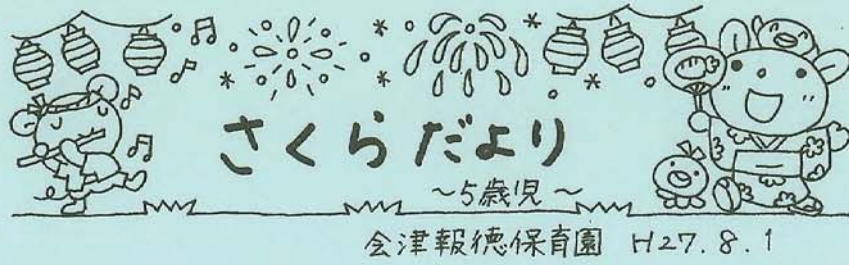 さくらだより
～5歳児～
会津報徳保育園 H27.8.1